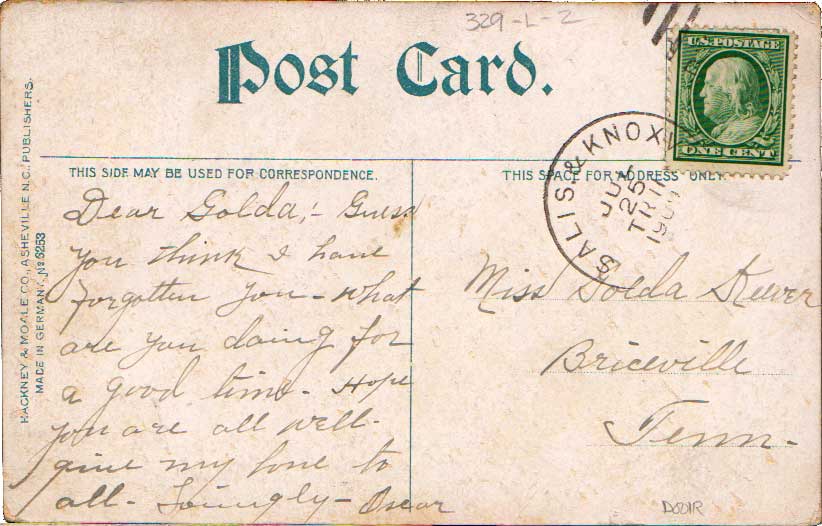 329-L-2
Post Card.
U.S. POSTAGE
ONE CENT
SALIS. & KNOX
25
TR 11
THIS SIDE MAY BE USED FOR CORRESPONDENCE.
THIS SPACE FOR ADDRESS ONLY
HACKNEY & MOALE CO., ASHEVILLE N.C. PUBLISHERS.
MADE IN GERMANY. No 6253
Dear Golda,- Guess
you think I have
forgotten you - what
are you doing for
a good time - Hope
you are all well -
give my love to
all - Lovingly - Oscar
Miss Golda
Briceville
Tenn -